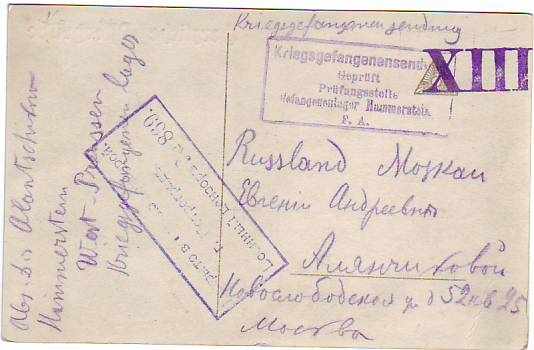 Kriegsgefangenensendung
Kriegsgefangenensend
Geprüft
Prüfungsstelle
Gefangenenlager Hammerstein.
F. A.
XIII
Russland Moskau
Евгении Андреевне
Алянчиковой
Новослободская у. д 52 кв 25
Москва
Abs. Alantschikow
Hammerstein
West-Preussen
Kriegsgefangenen lager
Военный Цензоръ № 839.